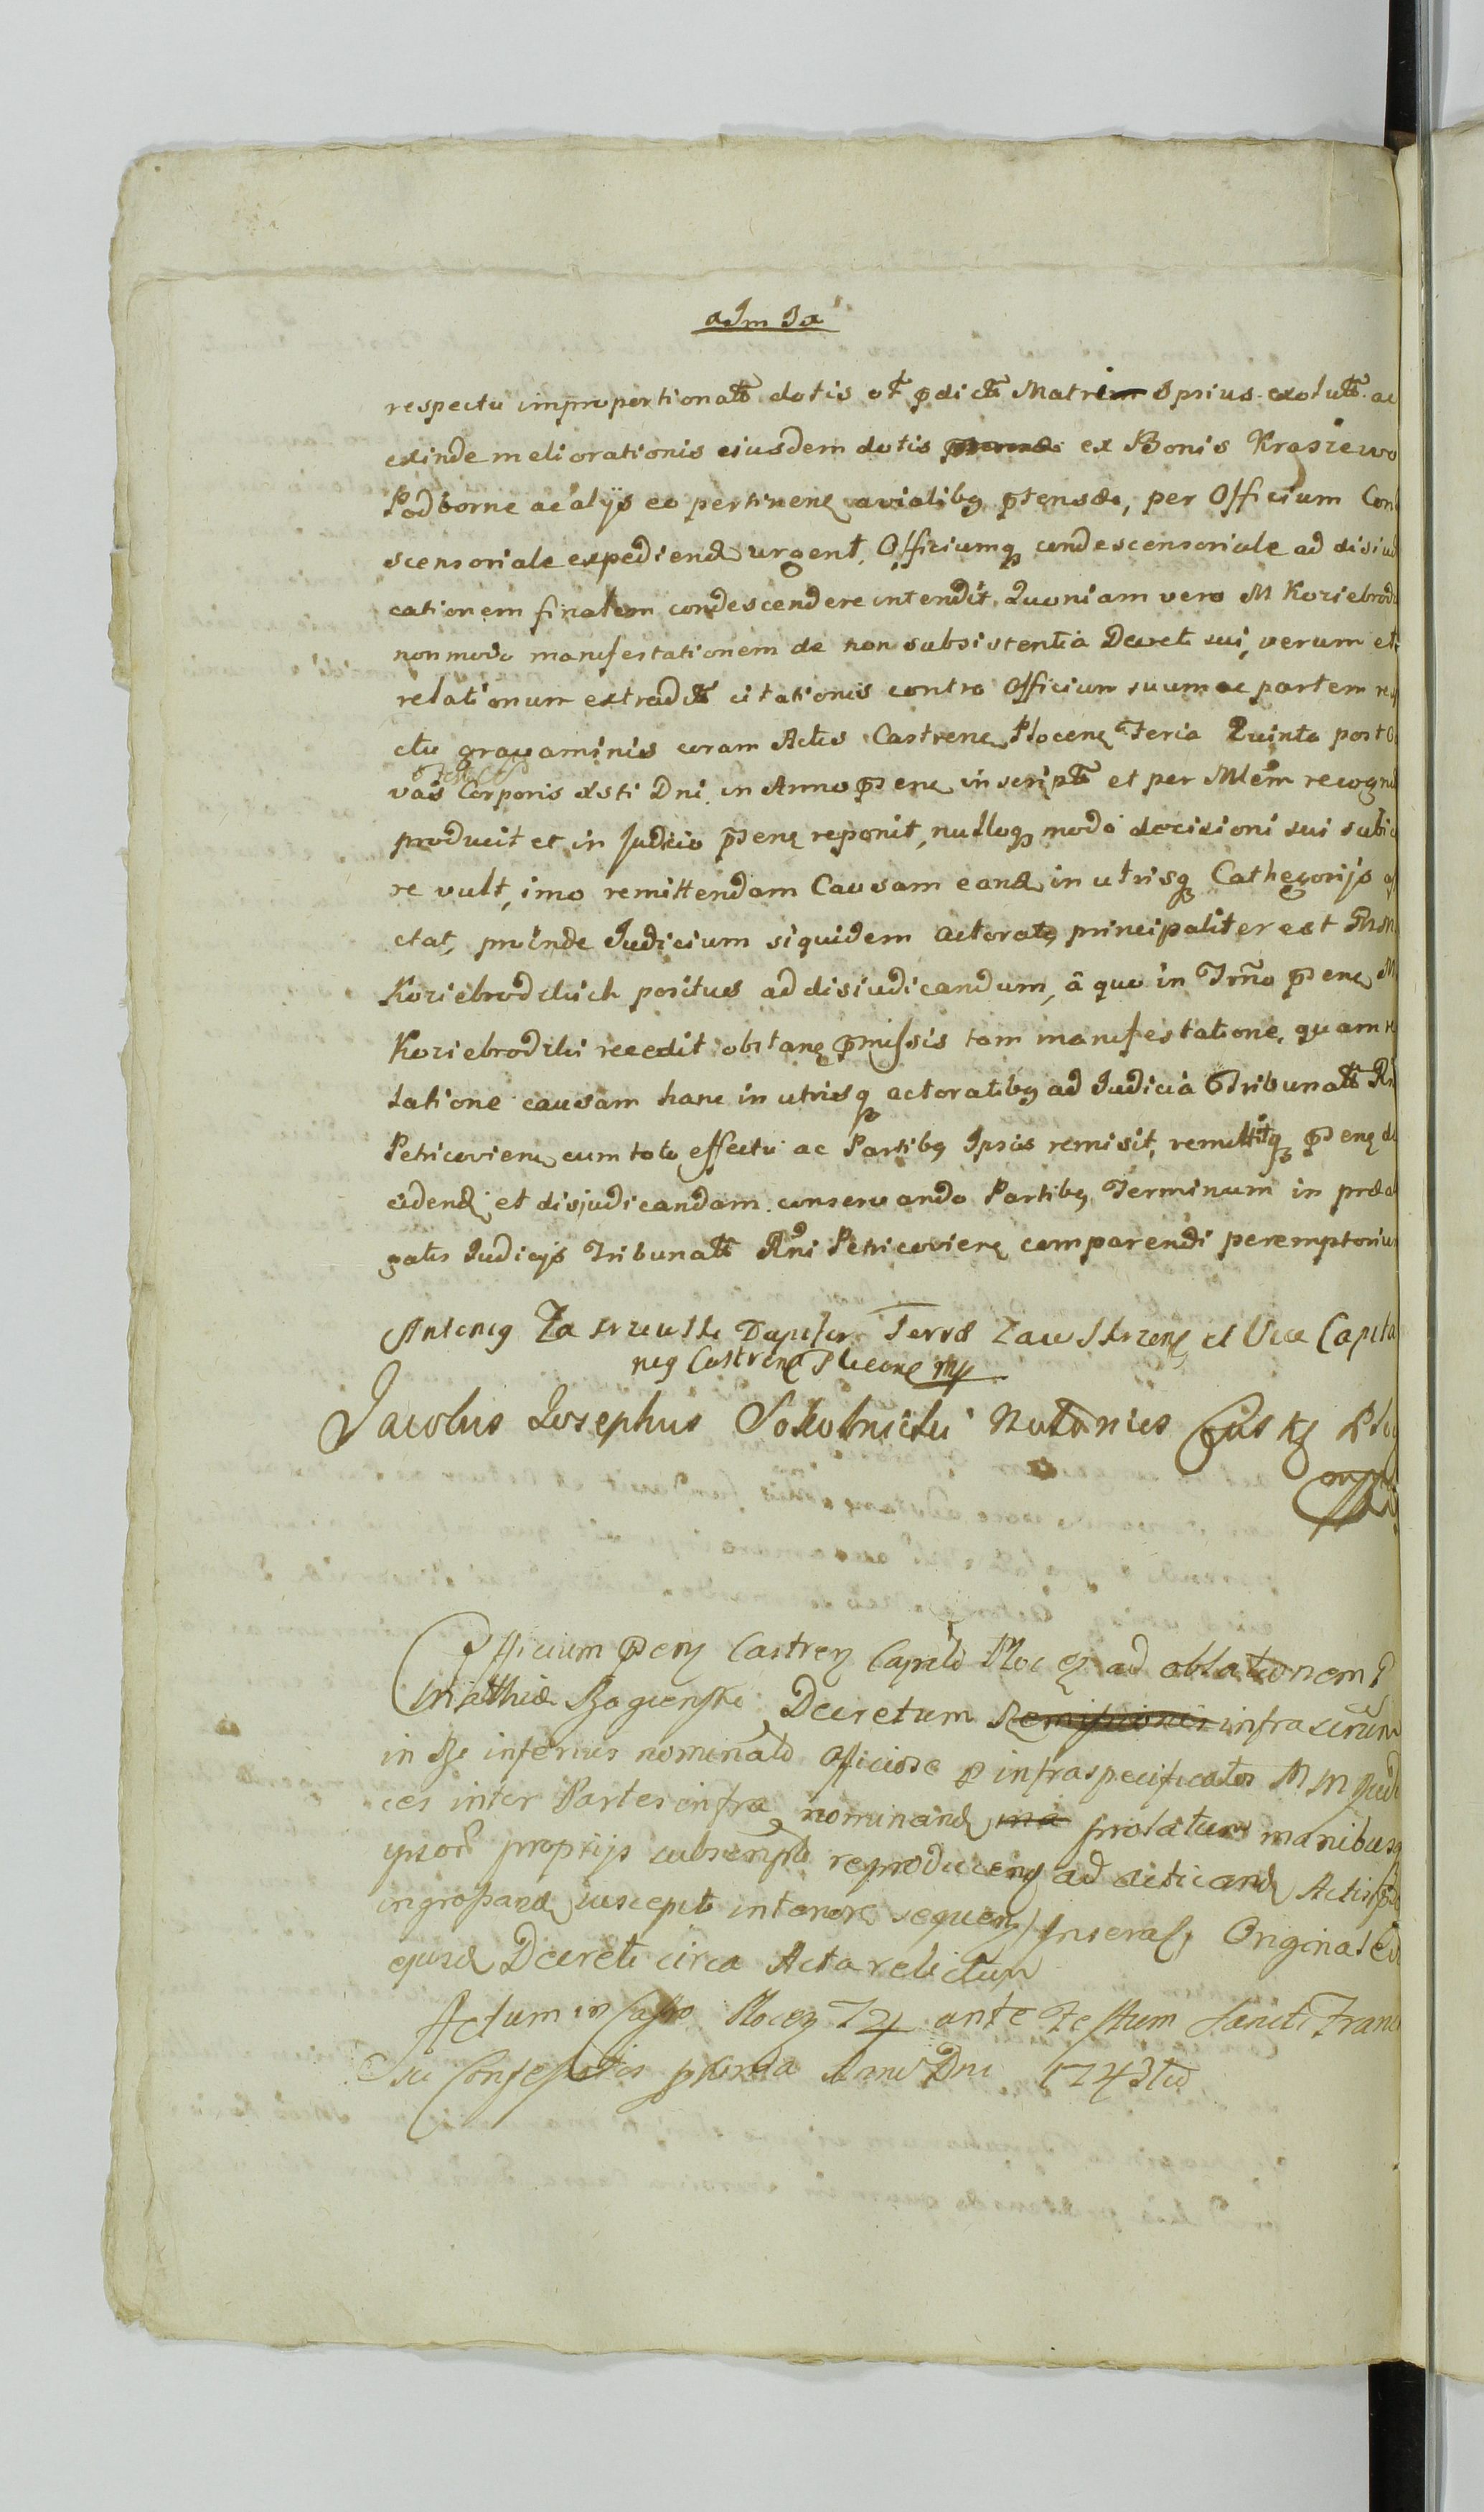 respectu improportionatæ dotis et pdictæ Matri prius exolutæ ac
exinde meliorationis eiusdem dotis ex Bonis Kraszewo
Podborne ac alijs eo pertinen avialibq ptensæ, per Officium Con
scensoriale expediend urgent, Officiumq condescensoriale ad disiud
cationem finalem condescendere intendit, Quoniam vero M Koziebrodz
non modo manifestationem de non subsistentia Decreti sui, verum et
relationum extraditæ citationis contra Officium suum ac partem res
ctu gravaminis coram Actis Castren Plocen Feria Quinta post Oc
vas Corporis Xsti Dni in Anno psen inscriptæ et per Mlem recogni
producit et in Judicio psen reponit, nulloq modo decisioni sui subic
re vult, imo remittendam Causam eand in utrisq Cathegorijs af
ctat, proinde Judicium siquidem actoratq principaliter est
Koziebrodzkich positus ad disiudicandum, â quo in Trno psen M
Koziebrodzki recedit obstan pmissis tam manifestatione, quam re
latione causam hanc in utrisq actoratibq ad Judicia Tribunalis Rn
Petricovien cum toto effectu ac Partibq Ipsis remisit, remittitq psen de
cidend et disjudicandam conservando Partibq Terminum in præal
gatis Judicijs Tribunalis Rni Petricovien comparendi peremptorium
Antonig Dapifer Terræ Zawskrzen et Vice Capita
neg Castren Plocen mp
Jacobus Josephus Sokolnicki Notarius Plo
mpp
Officium psen Castren Capitle Plocen ad oblationem
Mathiæ Decretum Remissionis infrascriptum
in Re inferius nominato Officiose p infraspecificatos M M Judi
ces inter Partes infra nominand prolatum manibusq
ipsor proprijs subscript reproducen ad acticand Actis ps
ingrossand suscepit in tenore sequen Inserat Originale
ejusd Decreti circa Acta relictum
Actum in Castro Plocen ante Festum Sancti Franc
sci Confessoris Anno Dni 1743tio